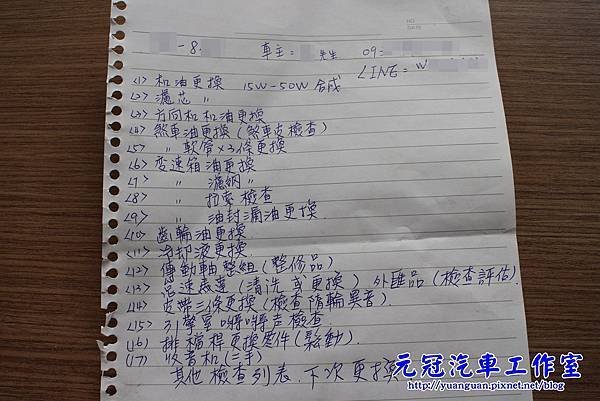 NO.
DATE
-8. 車主= 先生 09:
LINE= W
<1> 机油更換 15W-50W 合成
<2> 濾芯 〃
<3> 方向机机油更換
<4> 煞車油更換(煞車皮檢查)
<5> 〃 軟管x3條更換
<6> 变速箱油更換
<7> 〃 濾網 〃
<8> 〃 拉索檢查
<9> 〃 油封漏油更換
<10> 齒輪油更換
<11> 冷却液更換
<12> 傳動軸整組(整修品)
<13> 怠速馬達(清洗或更換) 外匯品(檢查評估)
<14> 皮帶三條更換(檢查隋輪異音)
<15> 引擎室 声檢查
(16) 排檔桿更換 件(鬆動)
(17) 收音机(二手)
其他檢查列表.下次更換
元冠汽車工作室
http://yuanguan.pixnet.net/blog